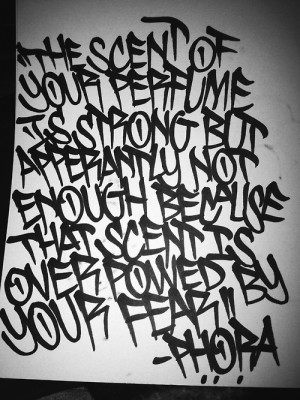 "THE SCENT OF
YOUR PERFUME
IS STRONG BUT
APPERANTLY NOT
ENOUGH BECAUSE
THAT SCENT IS
OVER POWED BY
YOUR FEAR"
-PHORA